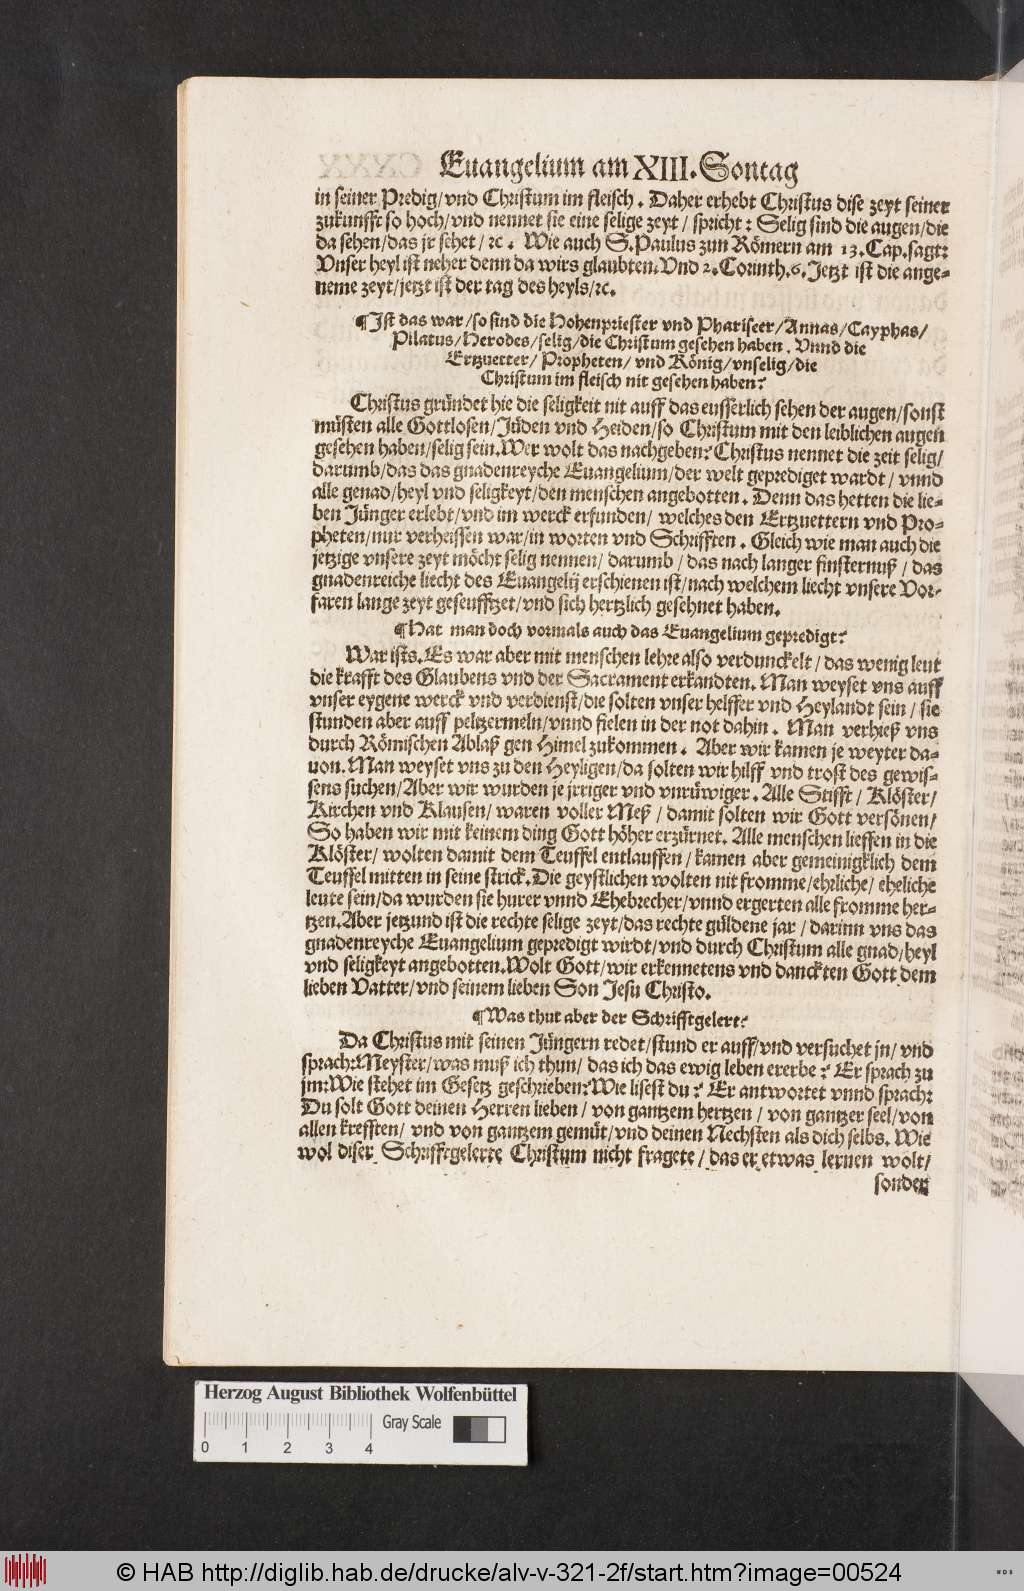 Euangelium am XIII. Sontag
in seiner Predig/ vnd Christum im fleisch. Daher erhebt Christus dise zeyt seiner
zukunfft so hoch/ vnd nennet sie eine selige zeyt / spricht: Selig sind die augen/ die
da sehen/ das jr sehet/ ꝛc. Wie auch S. Paulus zun Römern am 13. Cap. sagt:
Vnser heyl ist neher denn da wirs glaubten. Vnd 2. Corinth. 6. Jetzt ist die ange⸗
neme zeyt/ jetzt ist der tag des heyls/ ꝛc.
¶ Ist das war/ so sind die Hohenpriester vnd Phariseer/ Annas/ Cayphas/
Pilatus/ Herodes/ selig/ die Christum gesehen haben. Vnnd die
Ertzuetter/ Propheten/ vnd König/ vnselig/ die
Christum im fleisch nit gesehen haben?
Christus gründet hie die seligkeit nit auff das eusserlich sehen der augen/ sonst
müsten alle Gottlosen/ Jüden vnd Heiden/ so Christum mit den leiblichen augen
gesehen haben/ selig sein. Wer wolt das nachgeben? Christus nennet die zeit selig/
darumb/ das das gnadenreyche Euangelium/ der welt geprediget wardt / vnnd
alle genad/ heyl vnd seligkeyt/ den menschen angebotten. Denn das hetten die lie⸗
ben Jünger erlebt/ vnd im werck erfunden/ welches den Ertzuettern vnd Pro⸗
pheten/ nur verheissen war/ in worten vnd Schrifften. Gleich wie man auch die
jetzige vnsere zeyt möcht selig nennen/ darumb / das nach langer finsternuß / das
gnadenreiche liecht des Euangelij erschienen ist/ nach welchem liecht vnsere Vor⸗
faren lange zeyt geseufftzet/ vnd sich hertzlich gesehnet haben.
¶ Hat man doch vormals auch das Euangelium gepredigt?
War ists. Es war aber mit menschen lehre also verdunckelt / das wenig leut
die krafft des Glaubens vnd der Sacrament erkandten. Man weyset vns auff
vnser eygene werck vnd verdienst/ die solten vnser helffer vnd Heylandt sein / sie
stunden aber auff peltzermeln/ vnnd fielen in der not dahin. Man verhieß vns
durch Römischen Ablaß gen Himel zukommen. Aber wir kamen je weyter da⸗
uon. Man weyset vns zu den Heyligen/ da solten wir hilff vnd trost des gewis⸗
sens suchen/ Aber wir wurden je jrriger vnd vnrüwiger. Alle Stifft / Klöster/
Kirchen vnd Klausen/ waren voller Meß / damit solten wir Gott versönen/
So haben wir mit keinem ding Gott höher erzürnet. Alle menschen lieffen in die
Klöster/ wolten damit dem Teuffel entlauffen / kamen aber gemeinigklich dem
Teuffel mitten in seine strick. Die geystlichen wolten nit fromme/ ehrliche/ eheliche
leute sein/ da wurden sie hurer vnnd Ehebrecher/ vnnd ergerten alle fromme her⸗
tzen. Aber jetzund ist die rechte selige zeyt/ das rechte güldene jar / darinn vns das
gnadenreyche Euangelium gepredigt wirdt/ vnd durch Christum alle gnad/ heyl
vnd seligkeyt angebotten. Wolt Gott/ wir erkennetens vnd danckten Gott dem
lieben Vatter/ vnd seinem lieben Son Jesu Christo.
¶ Was thut aber der Schrifftgelert?
Da Christus mit seinen Jüngern redet/ stund er auff/ vnd versuchet jn/ vnd
sprach: Meyster/ was muß ich thun/ das ich das ewig leben ererbe? Er sprach zu
jm: Wie stehet im Gesetz geschrieben? Wie lisest du? Er antwortet vnnd sprach:
Du solt Gott deinen Herren lieben/ von gantzem hertzen / von gantzer seel/ von
allen krefften/ vnd von gantzem gemüt/ vnd deinen Nechsten als dich selbs. Wie
wol diser Schrifftgelerte Christum nicht fragete / das er etwas lernen wolt/
sonder
Herzog August Bibliothek Wolfenbüttel
Gray Scale
0 1 2 3 4
© HAB http://diglib.hab.de/drucke/alv-v-321-2f/start.htm?image=00524